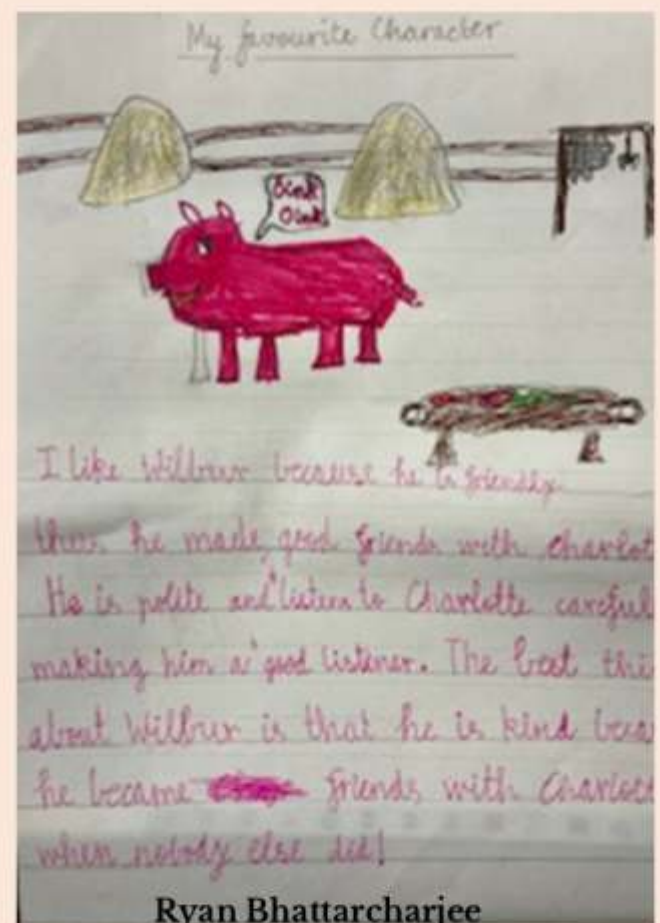 My favourite Character
Oink
Oink
I like Wilbur because he is friendly
then he made good friends with Charlot
He is polite and listens to Charlotte careful
making him a good listener. The best thi
about Wilbur is that he is kind beca
he became friends with Charlott
when nobody else did!
Ryan Bhattarcharjee